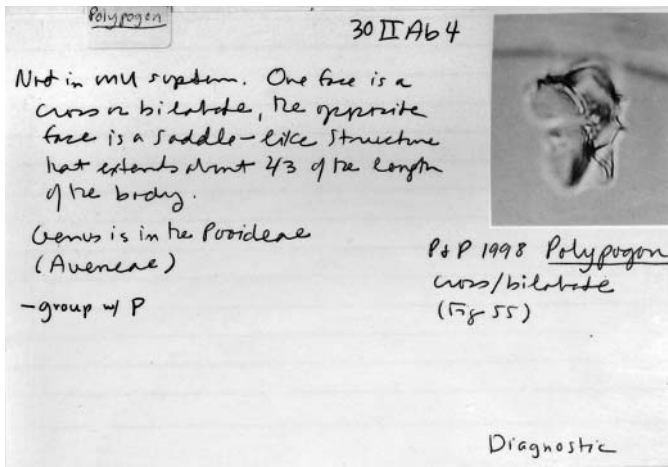 Polypogon
30 II Ab 4
Not in MU system. One face is a
cross or bilobate, the opposite
face is a saddle-like structure
that extends about 2/3 of the length
of the body.
Genus is in the Pooideae
(Aveneae)
- group w/ P
P&P 1998 Polypogon
cross/bilobate
(Fig 55)
Diagnostic